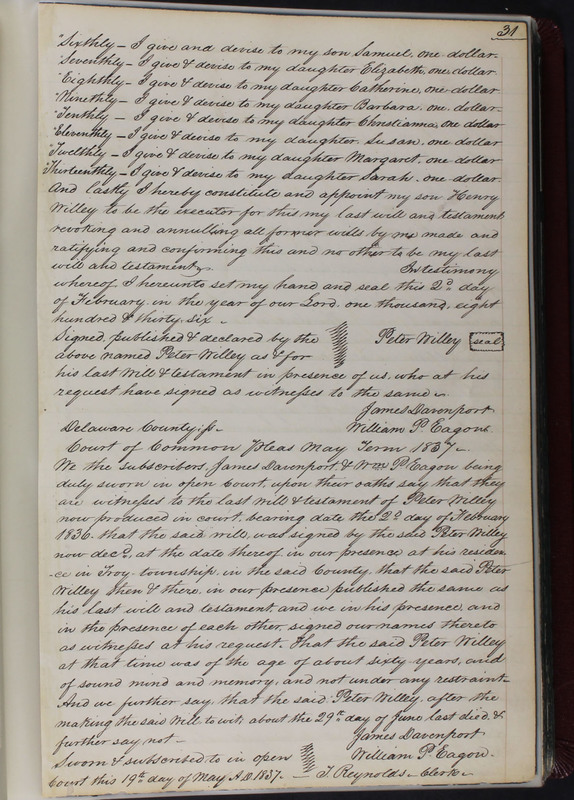 31
"Sixthly - I give and devise to my son Samuel, one dollar.
"Seventhly - I give & devise to my daughter Elizabeth, one dollar
"Eighthly - I give & devise to my daughter Catherine, one dollar
"Ninethly - I give & devise to my daughter Barbara, one dollar.
"Tenthly - I give & devise to my daughter Christianna, one dollar
"Eleventhly - I give & devise to my daughter Susan, one dollar
"Twelthly - I give & devise to my daughter Margaret, one dollar
"Thirteenthly - I give & devise to my daughter Sarah, one dollar
And lastly I hereby constitute and appoint my son Henry
Willey to be the executor for this my last will and testament
revoking and annulling all former wills by me made and
ratifying and confirming this and no other to be my last
will and testament. In testimony
whereof I hereunto set my hand and seal this 2d day
of February in the year of our Lord one thousand, eight
hundred & thirty six -
Signed, published & declared by the Peter Willey seal
above named Peter Willey as & for
his last will & testament in presence of us, who at his
request have signed as witnesses to the same -
James Davenport
Delaware County, ss - William P. Eagon
Court of Common Pleas May Term 1837 -
We the subscribers, James Davenport & Wm P Eagon being
duly sworn in open Court, upon their oaths say that they
are witnesses to the last will & testament of Peter Willey
now produced in court, bearing date the 2d day of February
1836. that the said will, was signed by the said Peter Willey
now decd, at the date thereof in our presence at his residen
-ce in Troy township, in the said County, that the said Peter
Willey then & there, in our presence published the same as
his last will and testament, and we in his presence, and
in the presence of each other, signed our names thereto
as witnesses at his request. That the said Peter Willey
at that time was of the age of about sixty years, and
of sound mind and memory, and not under any restraint -
And we further say, that the said Peter Willey, after the
making the said will, to wit, about the 29th day of June last died. &
further say not - James Davenport
Sworn & subscribed to in open William P Eagon
Court this 19th day of May A.D. 1837. - T. Reynolds - Clerk -